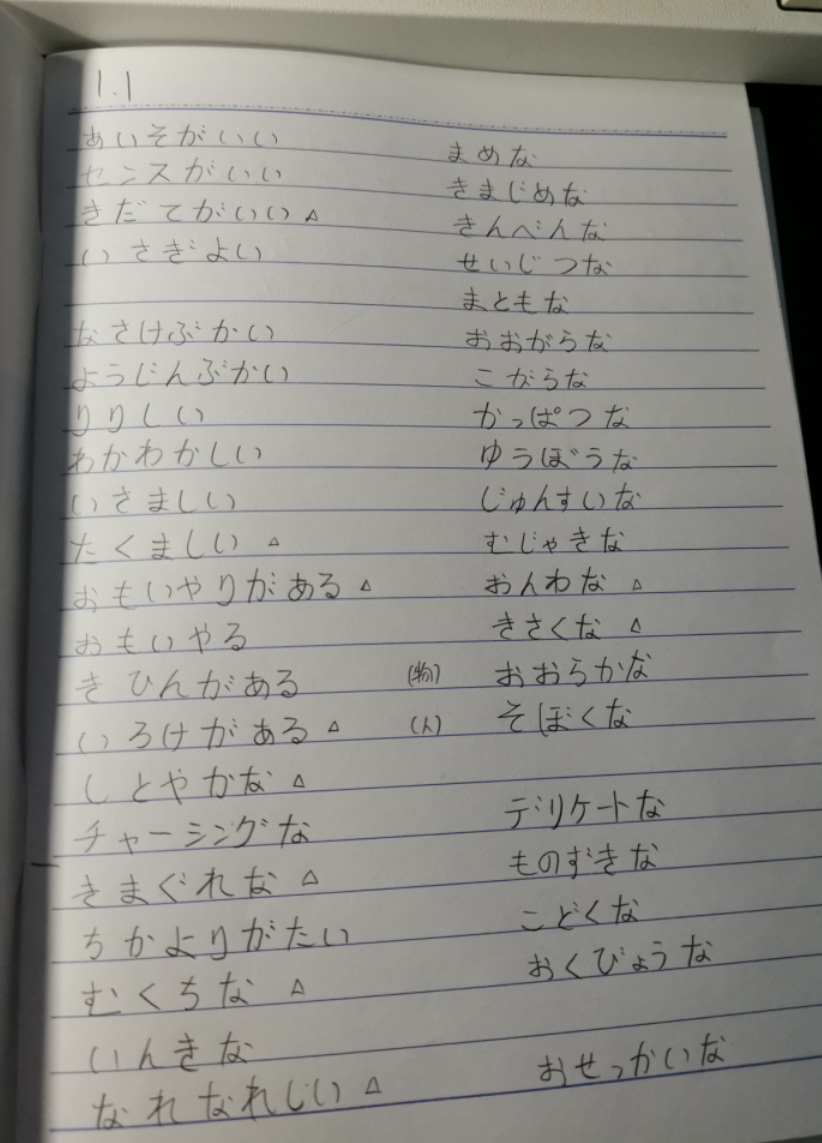 1.1
あいそがいい
センスがいい
きだてがいい △
いさぎよい
なさけぶかい
ようじんぶかい
りりしい
わかわかしい
いさましい
たくましい △
おもいやりがある △
おもいやる
きひんがある
いろけがある △
しとやかな △
チャーシングな
きまぐれな △
ちかよりがたい
むくちな △
いんきな
なれなれしい △
まめな
きまじめな
きんべんな
せいじつな
まともな
おおがらな
こがらな
かっぱつな
ゆうぼうな
じゅんすいな
むじゃきな
おんわな △
きさくな △
(物) おおらかな
(人) そぼくな
デリケートな
ものずきな
こどくな
おくびょうな
おせっかいな